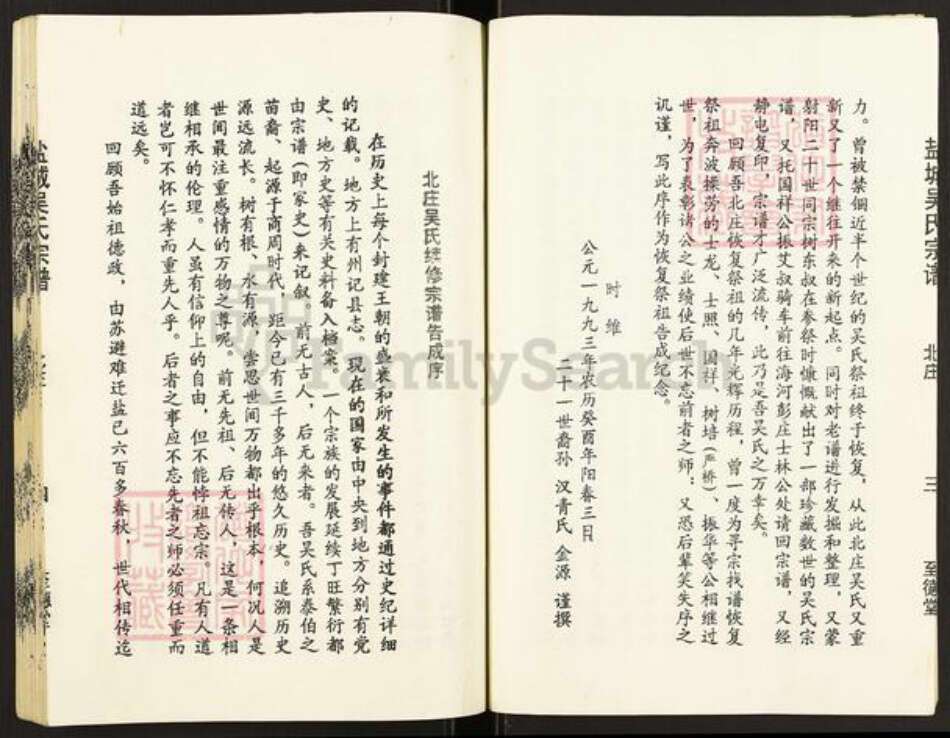 盐城吴氏宗谱 北庄 三 至德堂
力。曾被禁锢近半个世纪的吴氏祭祖终于恢复，从此北庄吴氏又重
新又了一个继往开来的新起点。同时对老谱进行发掘和整理，又蒙
射阳二十世同宗树东叔在参祭时慷慨献出了一部珍藏数世的吴氏宗
谱，又托国祥公振艾叔骑车前往海河彭庄士林公处请回宗谱，又经
静电复印，宗谱才广泛流传，此乃是吾吴氏之万幸矣。
回顾吾北庄恢复祭祖的几年光辉历程，曾一度为寻宗找谱恢复
祭祖奔波操劳的士龙、士照、国祥、树培（严桥）、振华等公相继过
世，为了表彰诸公之业绩使后世不忘前者之师；又恐后辈笑失序之
讥谨，写此序作为恢复祭祖告成纪念。
时维
公元一九九三年农历癸酉年阳春三日
二十一世裔孙 汉青氏 金源 谨撰
北庄吴氏续修宗谱告成序
在历史上每个封建王朝的盛衰和所发生的事件都通过史纪详细
的记载。地方上有州记县志。现在的国家由中央到地方分别有党
史、地方史等有关史料备入档案。一个宗族的发展延续丁旺繁衍都
由宗谱（即家史）来记叙。前无古人，后无来者。吾吴氏系泰伯之
苗裔、起源于商周时代，距今已有三千多年的悠久历史。追溯历史
源远流长。树有根、水有源，尝思世间万物都出乎根本，何况人是
世间最注重感情的万物之尊呢。前无先祖、后无传人，这是一条相
继相承的伦理。人虽有信仰上的自由，但不能悖祖忘宗。凡有人道
者岂可不怀仁孝而重先人乎。后者之事应不忘先者之师必须任重而
道远矣。
回顾吾始祖德政，由苏避难迁盐已六百多春秋，世代相传迄
盐城吴氏宗谱 四
FamilySearch